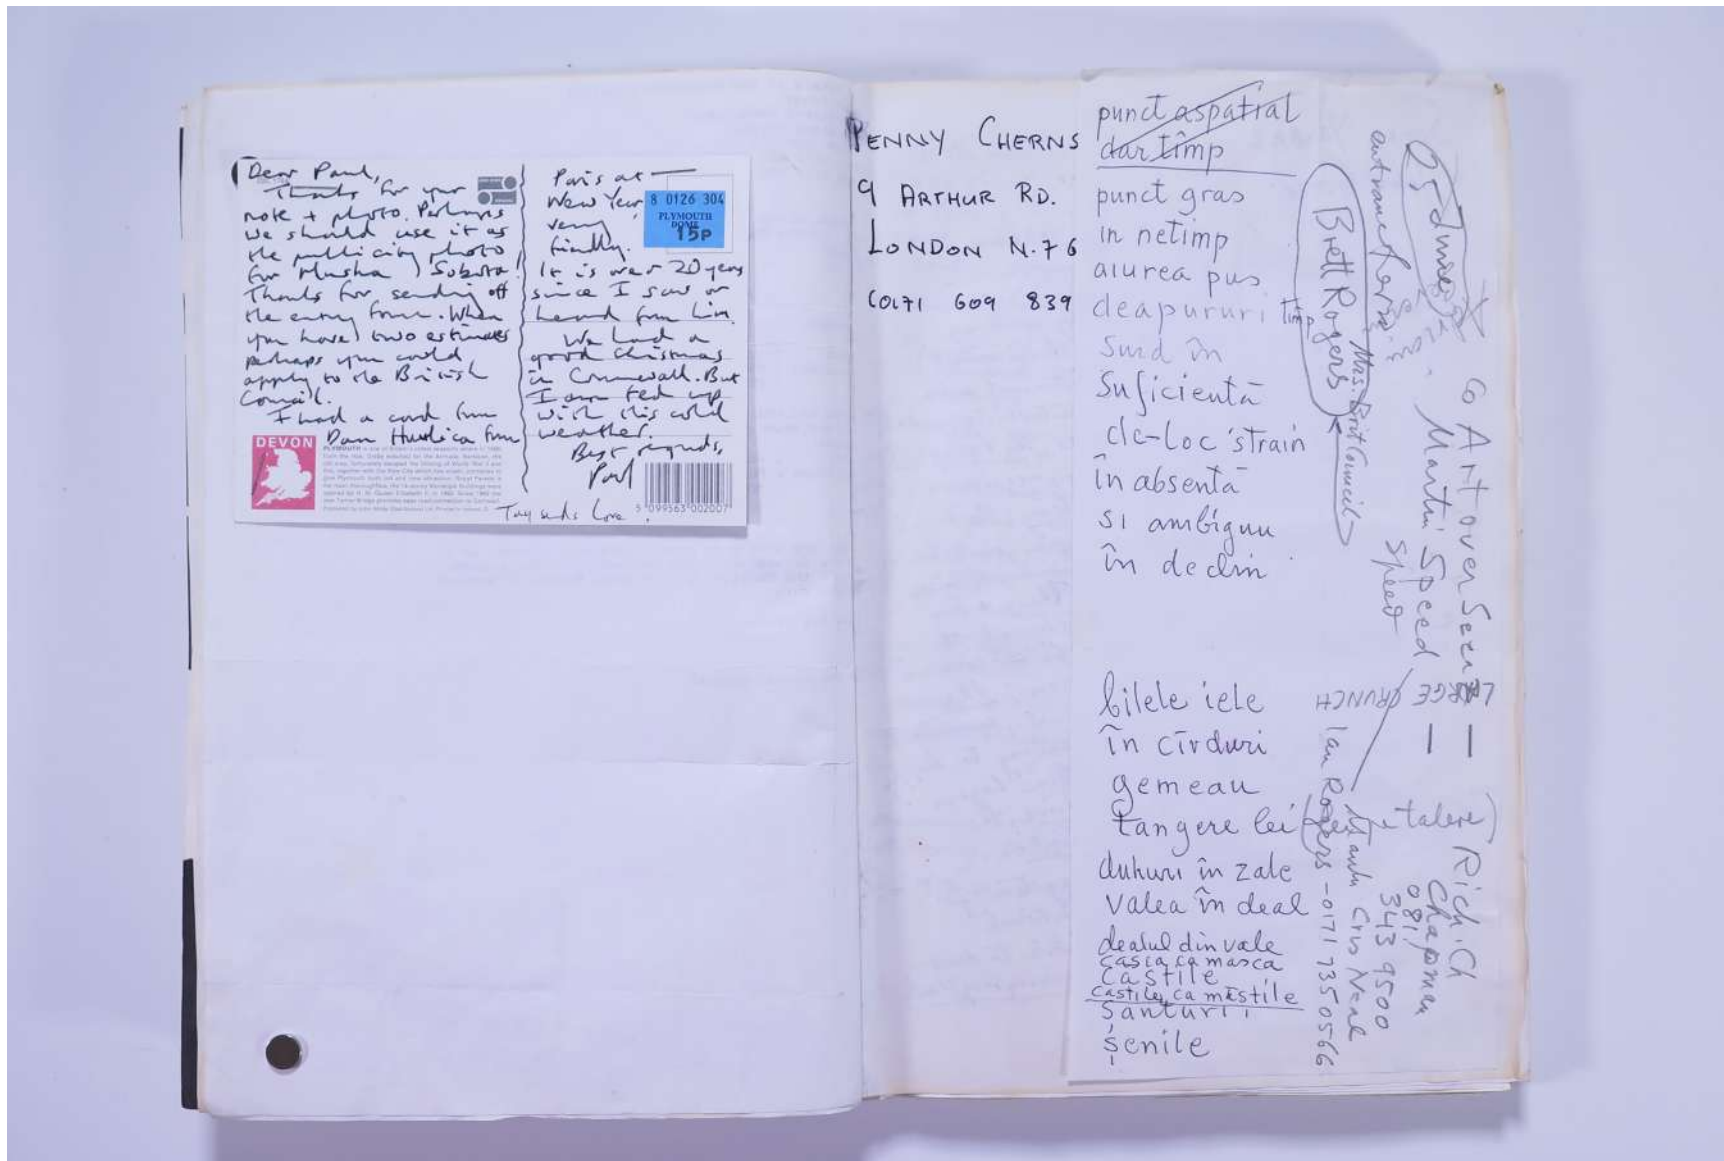 Dear Paul,
Thanks for your
note + photo. Perhaps
we should use it as
the publicity photo
for Musha / Subota!
Thanks for sending off
the entry form. When
you have two estimates
perhaps you could
apply to the British
Council.
I had a card from
Dan from
Paris at
New Year
very
friendly.
It is over 20 years
since I saw or
heard from him.
We had a
good Christmas
in Cornwall. But
I am fed up
with this cold
weather.
Best regards,
Paul
Tay sends love.
8 0126 304
PLYMOUTH
DOME
15P
DEVON
5 099563 002007
PENNY CHERNS
9 ARTHUR RD.
LONDON N.7 6
(0171 609 839
punct aspatial
dar timp
punct gras
in netimp
aiurea pus
deapururi timp
surd în
suficientā
de-loc strain
în absentā
si ambiguu
în declin
bilele iele
în cîrduri
gemeau
tangere lei (pe talere)
duhuri în zale
valea în deal
dealul din vale
casca ca masca
castile
castile ca mastile
santuri i
șenile
Brett Rogers
Mrs. Brit Council
Ian Rogers - 0171 735 0566
LARGE CRUNCH
Art over
Martin Speed
Speed
Neal
343 9500
081
Rich. Ch
Chapman